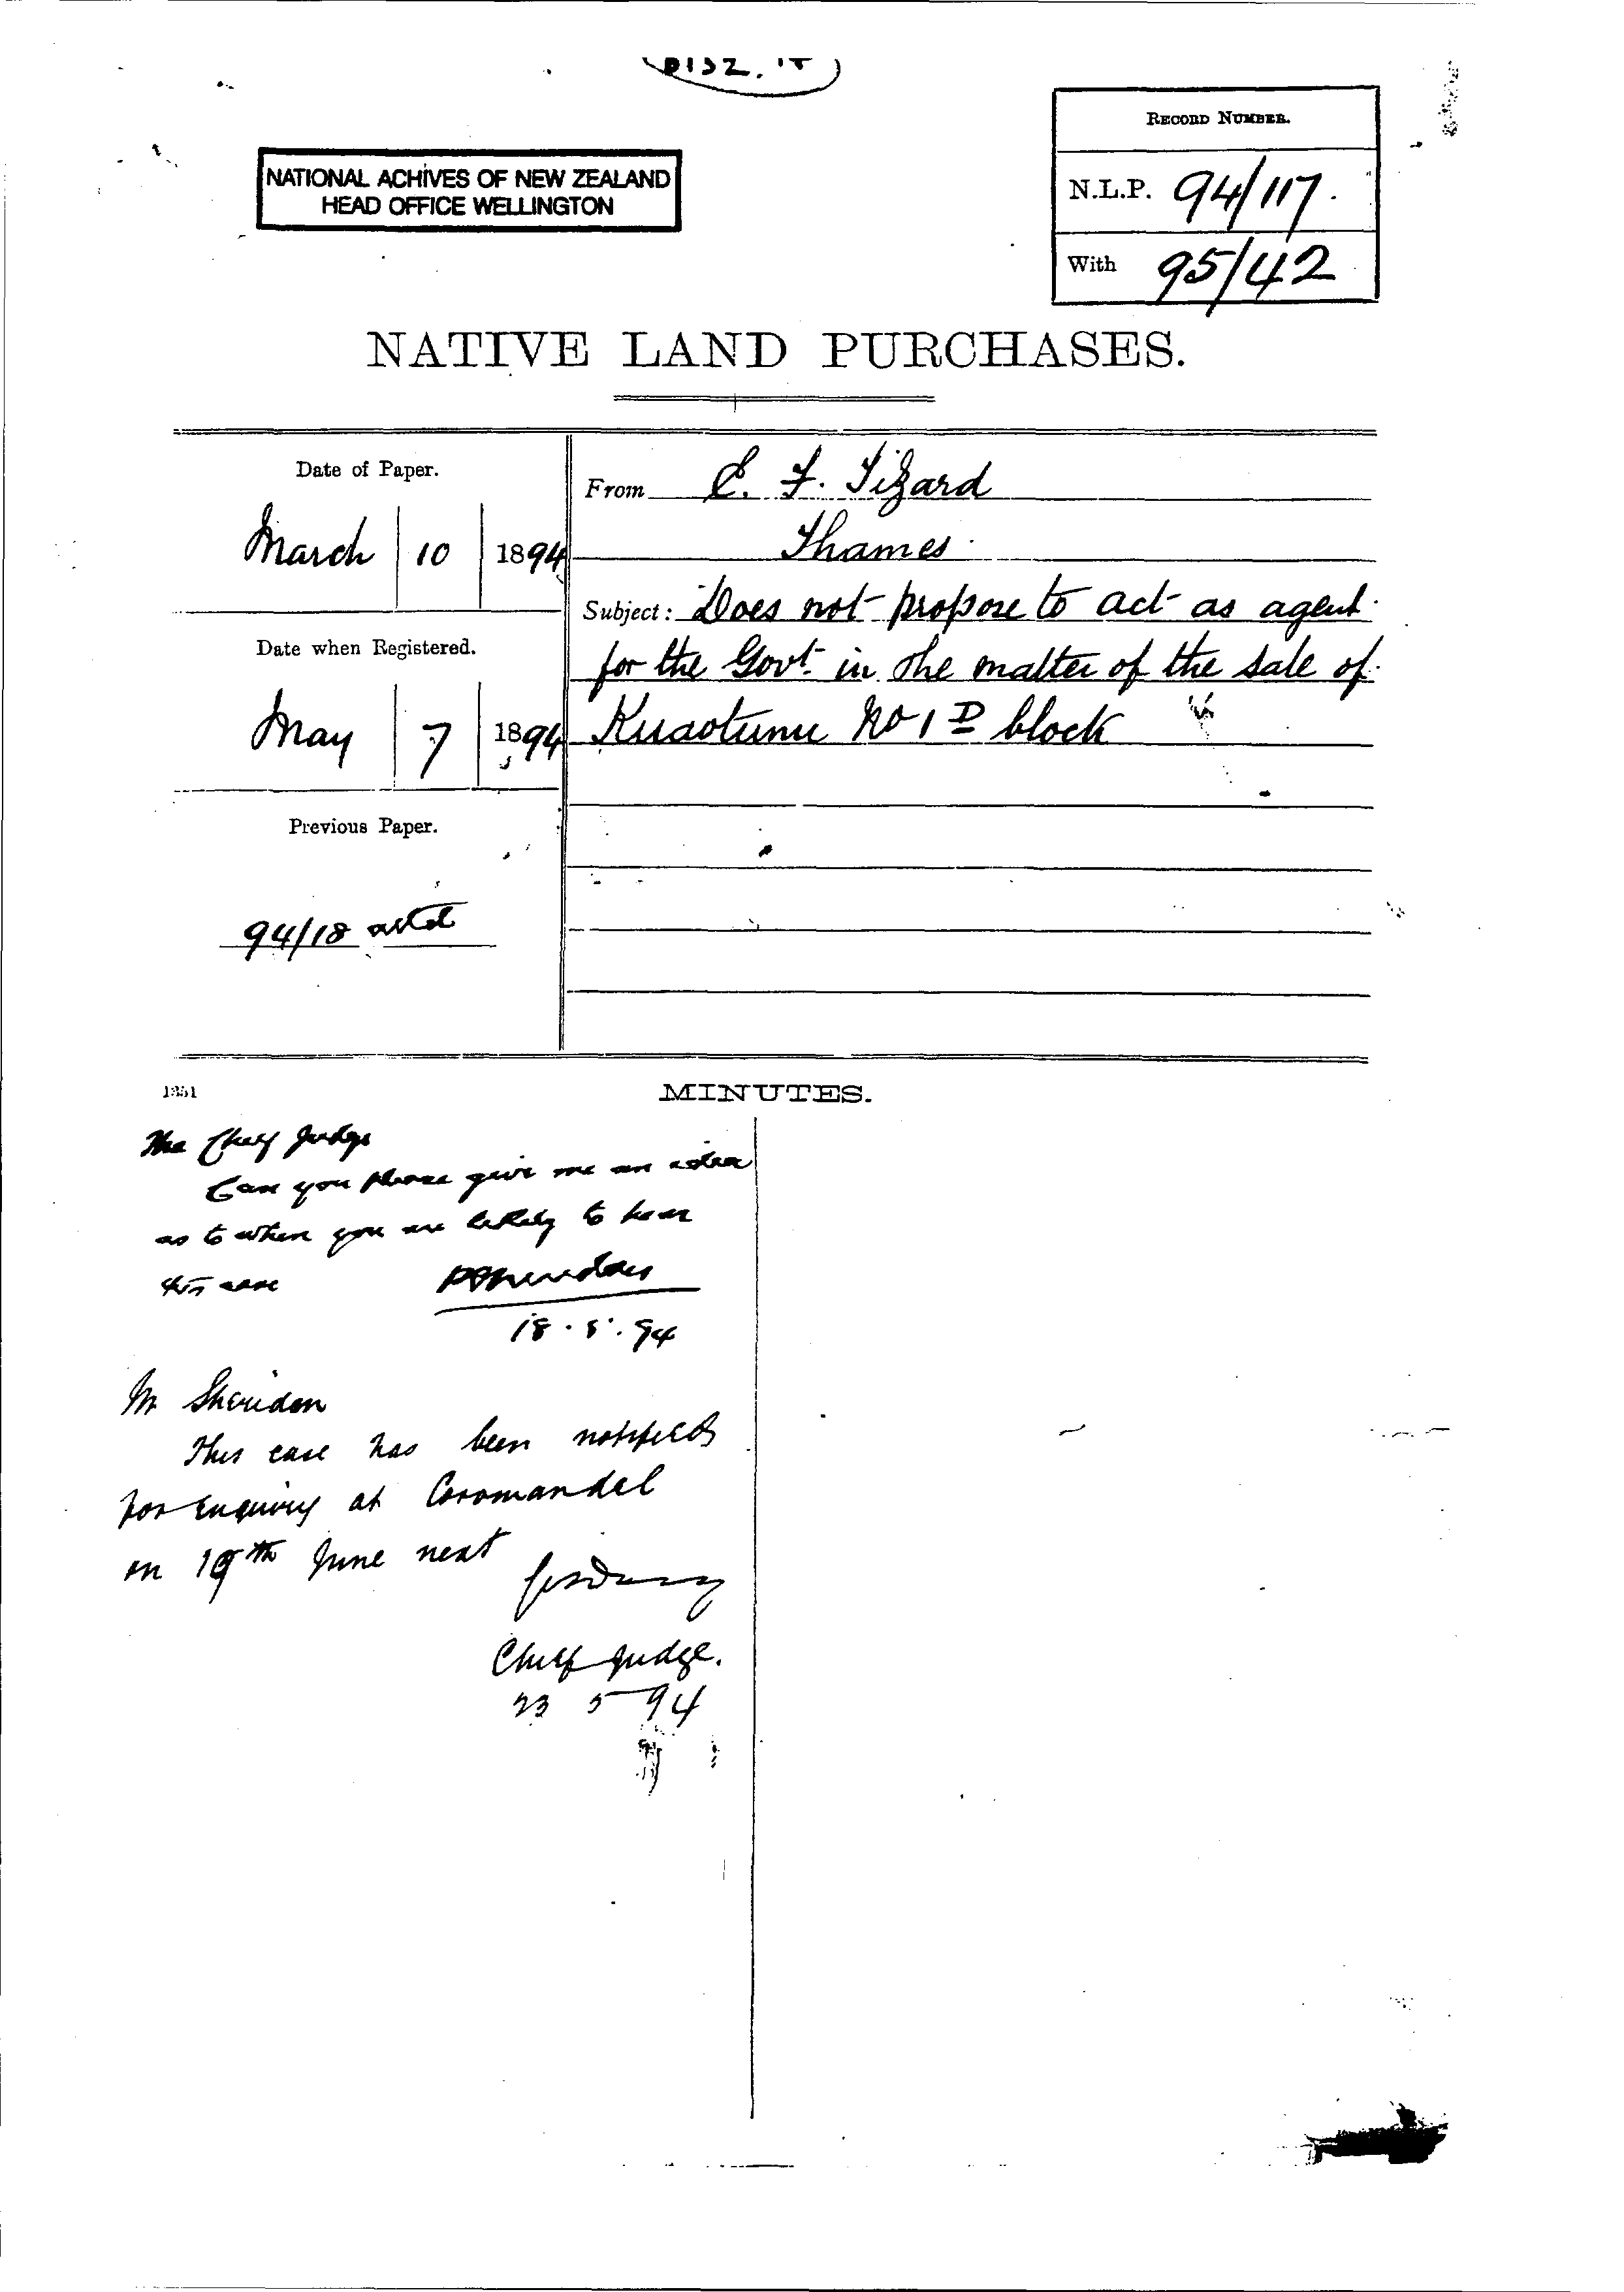 NATIONAL ACHIVES OF NEW ZEALAND
HEAD OFFICE WELLINGTON
RECORD NUMBER.
N.L.P. 94/117.
With 95/42
NATIVE LAND PURCHASES.
Date of Paper.
March 10 1894
Date when Registered.
May 7 1894
Previous Paper.
94/18
From E. F. Tizard
Thames
Subject: Does not propose to act as agent
for the Govt. in the matter of the sale of
Kuaotunu No 1 D block
1351
MINUTES.
The Chief Judge
Can you please give me an idea
as to when you are likely to hear
this case
PSheridan
18.5.94
Mr Sheridan
This case has been notified
for Enquiry at Coromandel
on 19th June next
Chief Judge.
23 5 94